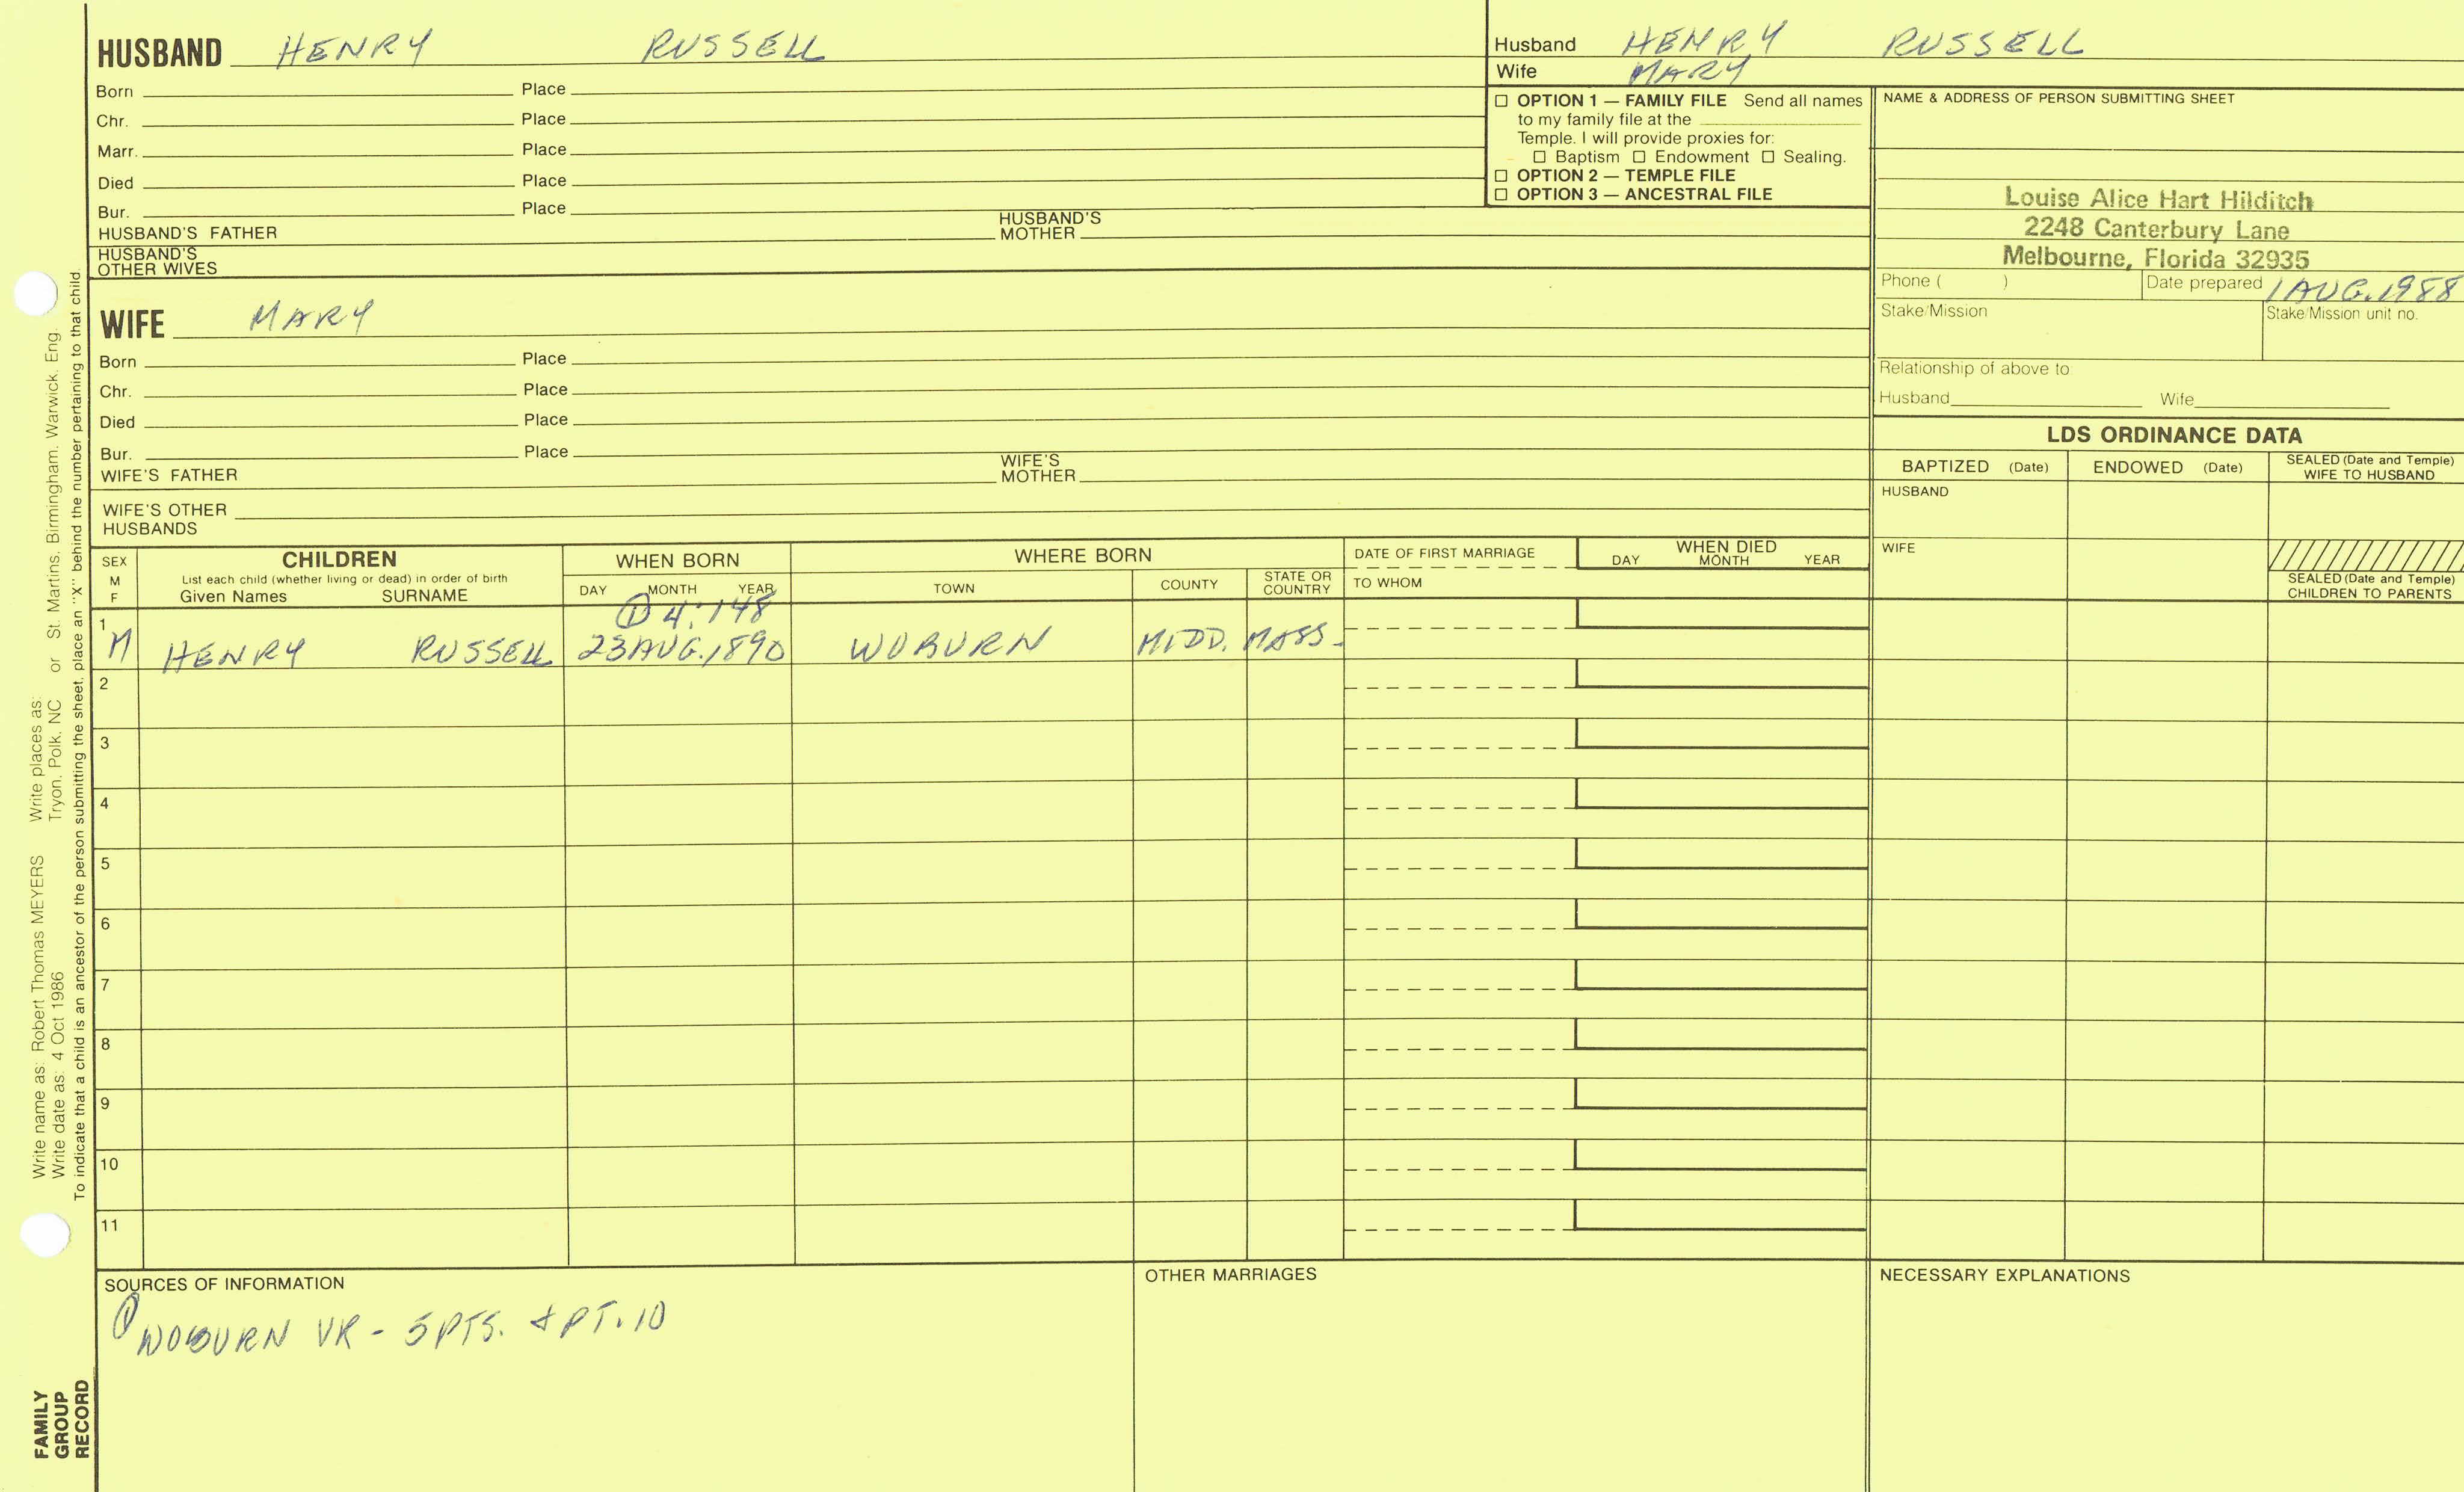 HUSBAND HENRY RUSSELL
Born Place
Chr. Place
Marr. Place
Died Place
Bur. Place
HUSBAND'S FATHER HUSBAND'S MOTHER
HUSBAND'S OTHER WIVES
Husband HENRY RUSSELL
Wife MARY
☐ OPTION 1 — FAMILY FILE Send all names
to my family file at the
Temple. I will provide proxies for:
☐ Baptism ☐ Endowment ☐ Sealing.
☐ OPTION 2 — TEMPLE FILE
☐ OPTION 3 — ANCESTRAL FILE
NAME & ADDRESS OF PERSON SUBMITTING SHEET
Louise Alice Hart Hilditch
2248 Canterbury Lane
Melbourne, Florida 32935
Phone ( ) Date prepared 1 AUG. 1988
Stake/Mission Stake/Mission unit no.
Relationship of above to
Husband Wife
WIFE MARY
Born Place
Chr. Place
Died Place
Bur. Place
WIFE'S FATHER WIFE'S MOTHER
WIFE'S OTHER
HUSBANDS
LDS ORDINANCE DATA
BAPTIZED (Date) ENDOWED (Date) SEALED (Date and Temple) WIFE TO HUSBAND
HUSBAND
WIFE
SEALED (Date and Temple)
CHILDREN TO PARENTS
SEX M F
CHILDREN
List each child (whether living or dead) in order of birth
Given Names SURNAME
WHEN BORN
DAY MONTH YEAR
WHERE BORN
TOWN COUNTY STATE OR COUNTRY
DATE OF FIRST MARRIAGE
TO WHOM
WHEN DIED
DAY MONTH YEAR
① 4:148
1 M HENRY RUSSELL 23 AUG. 1890 WOBURN MIDD. MASS.
2
3
4
5
6
7
8
9
10
11
SOURCES OF INFORMATION
① WOBURN VR - 5 PTS. & PT. 10
OTHER MARRIAGES
NECESSARY EXPLANATIONS
Write name as: Robert Thomas MEYERS Write places as:
Write date as: 4 Oct 1986 Tryon, Polk, NC or St. Martins, Birmingham, Warwick, Eng.
To indicate that a child is an ancestor of the person submitting the sheet, place an "X" behind the number pertaining to that child.
FAMILY
GROUP
RECORD